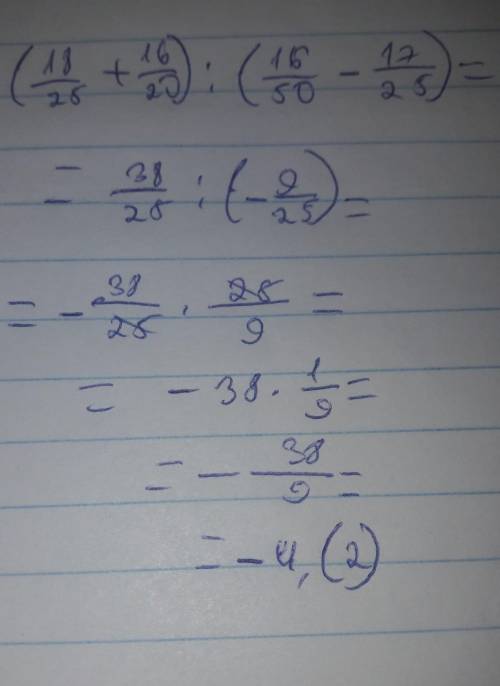 (18/25 + 16/20) : (16/50 - 17/25) =
= 38/25 : (- 9/25) =
= - 38/25 · 25/9 =
= - 38 · 1/9 =
= - 38/9 =
= - 4,(2)